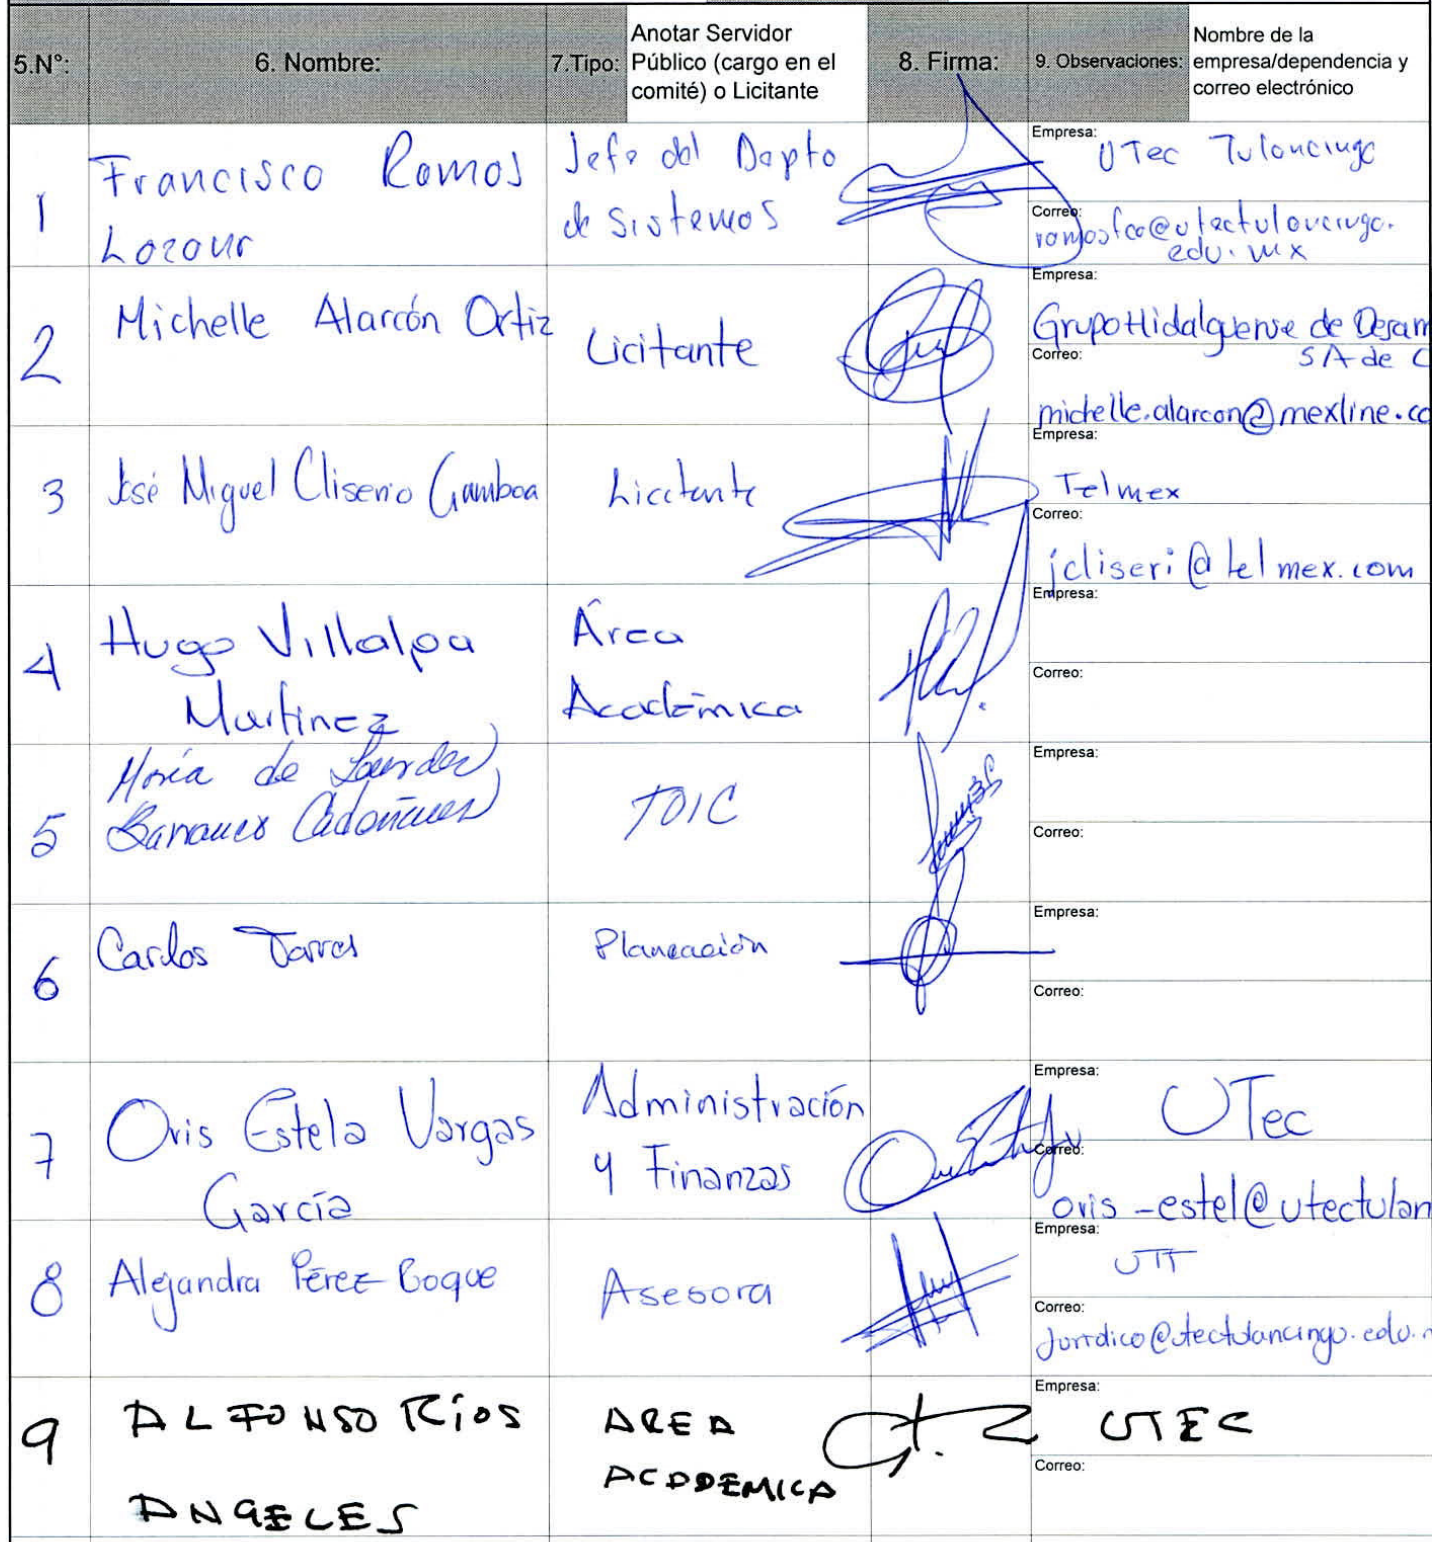 5.N°: 6. Nombre: 7.Tipo: Anotar Servidor Público (cargo en el comité) o Licitante 8. Firma: 9. Observaciones: Nombre de la empresa/dependencia y correo electrónico
1
Francisco Ramos
Lozano
Jefe del Depto
de Sistemas
Empresa:
UTec Tulancingo
Correo:
ramosfco@utectulancingo.
edu.mx
2
Michelle Alarcón Ortiz
Licitante
Empresa:
Grupo Hidalguense de Desarr
SA de C
Correo:
michelle.alarcon@mexline.co
3
José Miguel Cliserio Gamboa
Licitante
Empresa:
Telmex
Correo:
jcliseri@telmex.com
4
Hugo Villalpa
Martínez
Área
Académica
Empresa:
Correo:
5
María de Lourdes
TOIC
Empresa:
Correo:
6
Carlos Torres
Planeación
Empresa:
Correo:
7
Oris Estela Vargas
García
Administración
y Finanzas
Empresa:
UTec
Correo:
oris-estel@utectulan
8
Alejandra Pérez Roque
Asesora
Empresa:
UTT
Correo:
Juridico@utectulancingo.edu.
9
ALFONSO Ríos
ANGELES
AREA
ACADEMICA
Empresa:
UTEC
Correo: